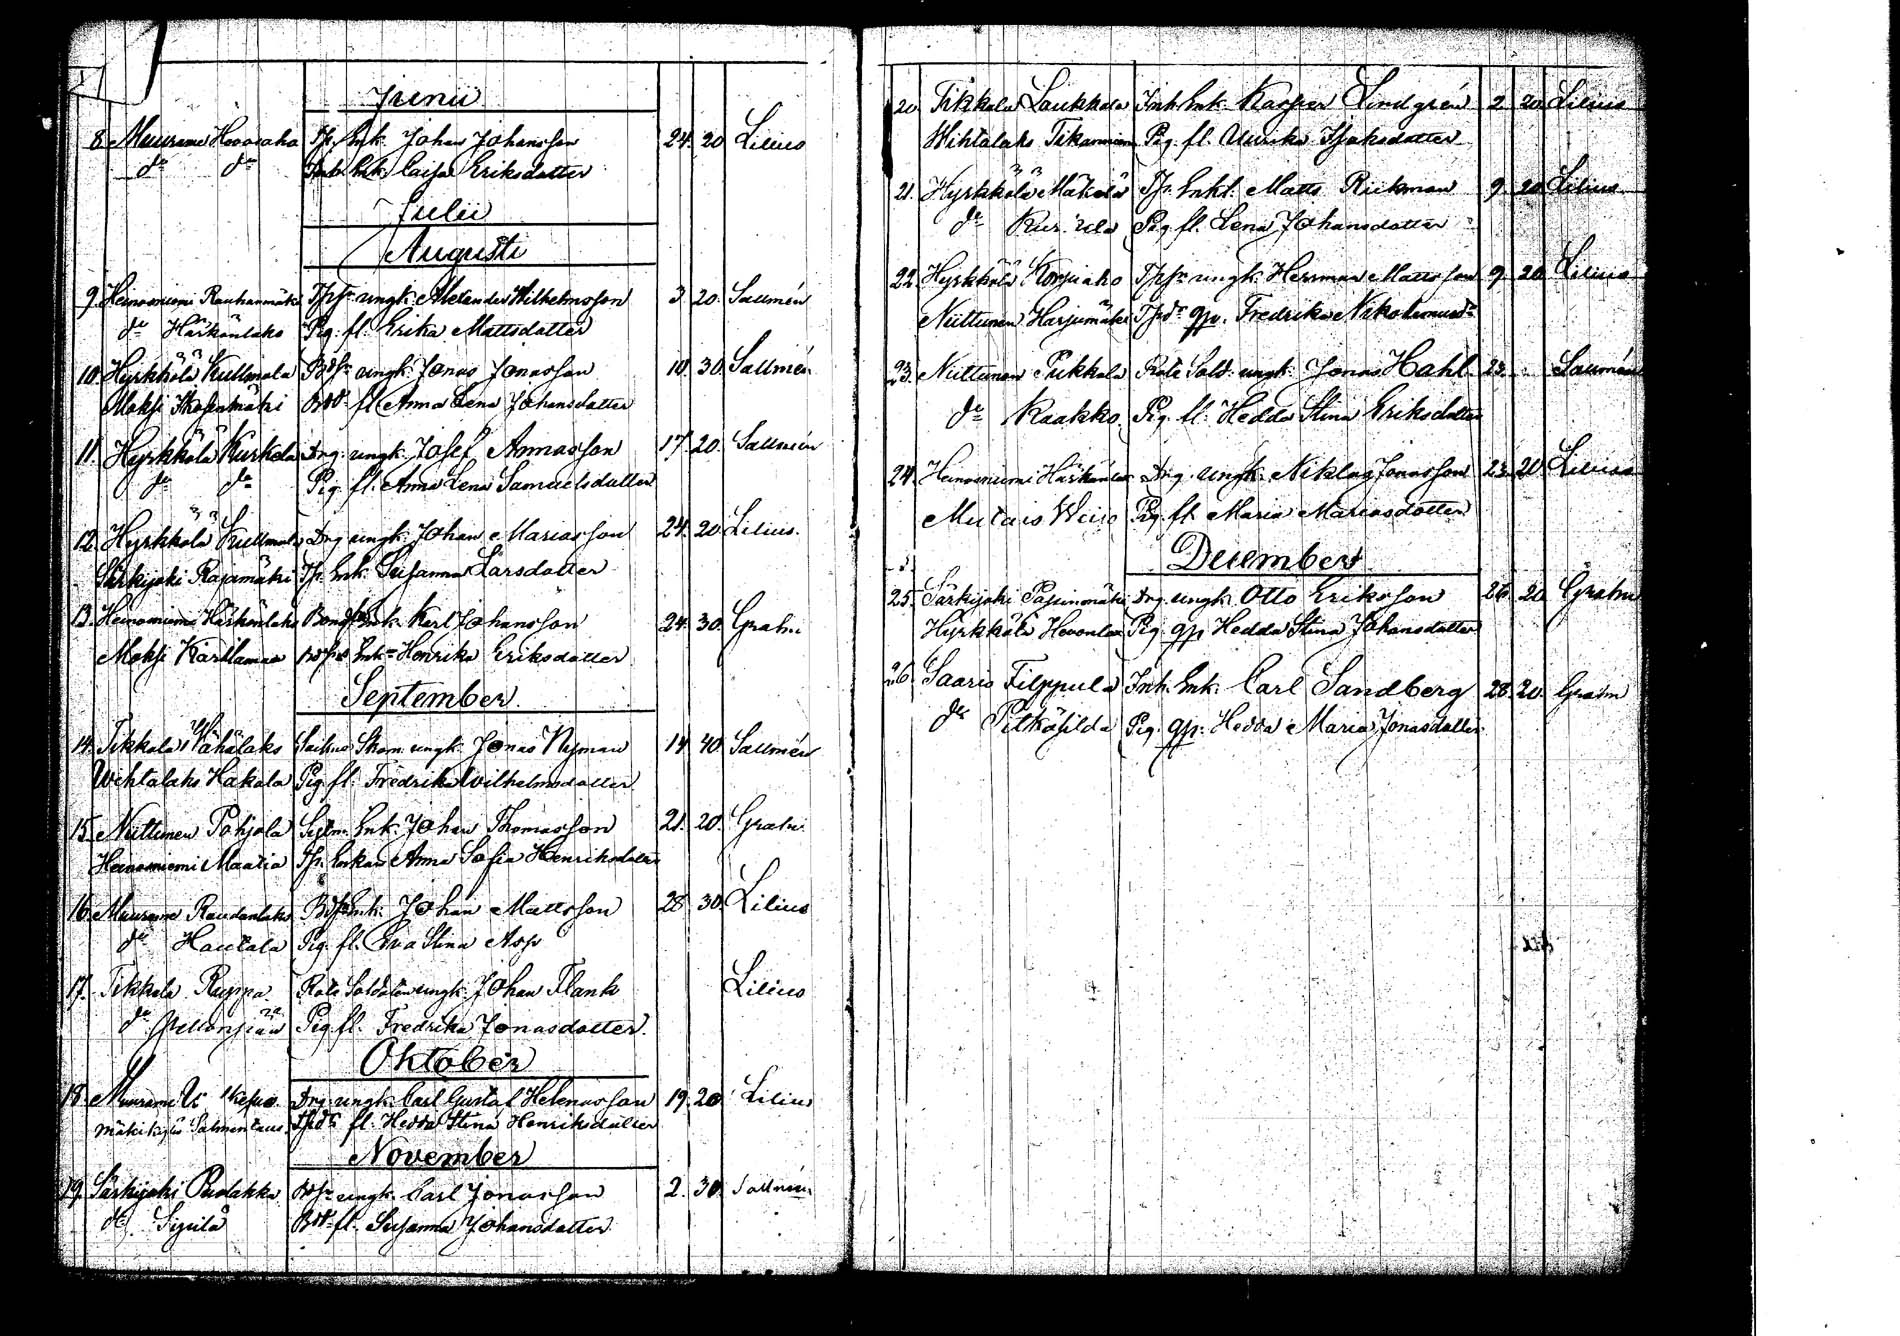 Junii
8. Muurame Hovosaho Tp. Enk. Johan Johansson 24. 20 Lilius
do do Inh. Enk. Caisa Eriksdotter
Julii
Augusti
9. Heinoniemi Rauhanmäki Tpsn ungk. Alexander Wilhelmsson 3. 20. Sallmén
do Härkänlaks Pig. fl. Erika Mattsdotter
10. Hyrkkölä Kullmala Bdsn ungk. Jonas Jonasson 10. 30. Sallmén
Moksi Bdr fl. Anna Lena Johansdotter
11. Hyrkkölä Kurkela Drg. ungk. Josef Annasson 17. 20. Sallmén
do do Pig. fl. Anna Lena Samuelsdotter
12. Hyrkkölä Kullmala Drg ungk. Johan Mariasson 24. 20. Lilius.
Särkijoki Rajamäki Tp. Enk. Susanna Larsdotter
13. Heinoniemi Härkänlaks Bond. Enk. Karl Johansson 24. 30. Grahn
Moksi Karilamaa Enk. Henrika Eriksdotter
September
14. Tikkala Vähälaks Skom. ungk. Jonas Nyman 14. 40. Sallmén
Wihtalaks Hakala Pig fl. Fredrika Wilhelmsdotter
15. Niittunen Pohjola Sytn. Enk. Johan Thomasson 21. 20. Grahn
Heinoniemi Maatia Tp. Enkan Anna Sofia Henriksdotter
16. Muurame Raudanlaks Bdsn Enk. Johan Mattsson 28 30. Lilius
do Hautala Pig. fl. Eva Stina Asp
17. Tikkala Ruppa Rote Soldaten ungk. Johan Flank Lilius
do Pellonpää Pig. fl. Fredrika Jonasdotter.
Oktober
18. Muurame Drg. ungk. Carl Gustaf Helenasson 19. 20 Lilius
Mäkikylä Salmentaus Tpdr fl. Hedda Stina Henriksdotter
November
19. Särkijoki Puolakka Bdsn ungk. Carl Jonasson 2. 30. Sallmén
do Sipilä Bdr fl. Susanna Johansdotter
20. Tikkala Laukkala Inh. Enk. Kasper Lindgrén 2. 20. Lilius
Wihtalaks Tikanniemi Pig. fl. Ulrika Isaksdotter
21. Hyrkkölä Mäkelä Tp. Enkl. Matts Riikman 9. 20 Lilius
do Pig. fl. Lena Johansdotter
22. Hyrkkölä Korpiaho Tpsn ungk. Herrman Mattsson 9 20 Lilius
Niittunen Harjumäki Tpdr qp. Fredrika Nikodemusdr
23. Niittunen Pukkala Rote Sold. ungk. Jonas Hahl 23. Sallmén
do Kaakko. Pig. fl. Hedda Stina Eriksdotter
24. Heinoniemi Härkänlaks Drg. ungk. Niklas Jonasson 23. 20 Lilius
Mutais Pig. fl. Maria Mariasdotter
December
25. Särkijoki Drg. ungk. Otto Eriksson 26. 20 Grahn
Hyrkkölä Hevonlax Pig. qp. Hedda Stina Johansdotter
26. Saaris Filppula Inh. Enk. Carl Sandberg 28. 20. Grahn
do Pitkäsilda Pig. qp. Hedda Maria Jonasdotter